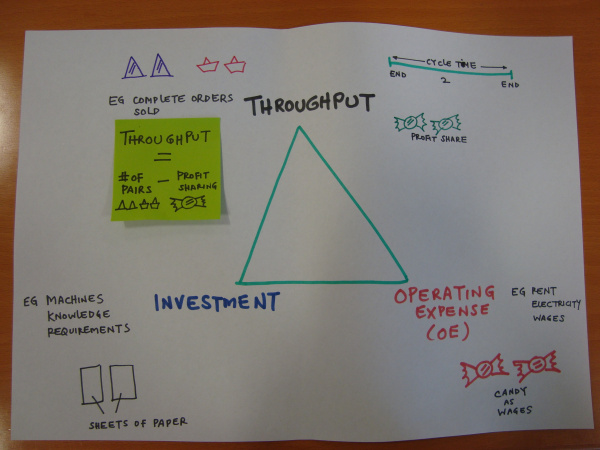 CYCLE TIME
END
2
END
EG COMPLETE ORDERS
SOLD
THROUGHPUT
PROFIT SHARE
THROUGHPUT
=
# OF
PAIRS
-
PROFIT
SHARING
EG MACHINES
KNOWLEDGE
REQUIREMENTS
INVESTMENT
OPERATING
EXPENSE
(OE)
EG RENT
ELECTRICITY
WAGES
SHEETS OF PAPER
CANDY
AS
WAGES